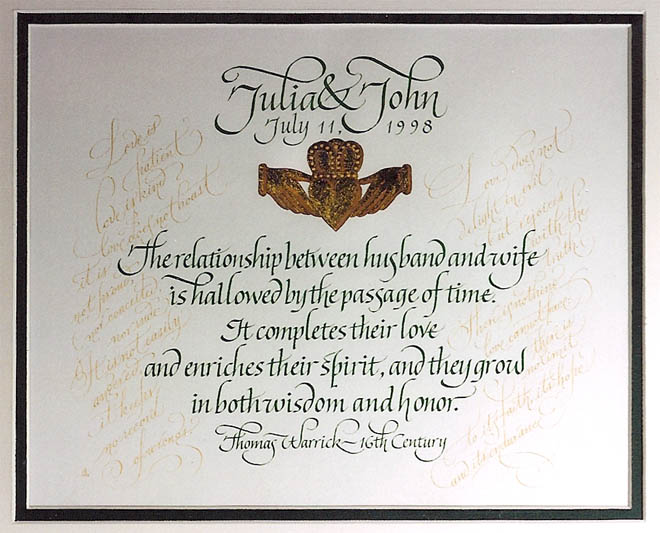 Julia & John
July 11, 1998
Love is
patient
love is kind
love does not boast
it is
not proud
nor conceited
nor rude
It is not easily
angered
it keeps
no record
of wrongs.
Love does not
delight in evil
but rejoices
with the
truth
There is nothing
love cannot face
there is
no limit
to its faith, its hope
and its endurance
The relationship between husband and wife
is hallowed by the passage of time.
It completes their love
and enriches their spirit, and they grow
in both wisdom and honor.
Thomas Warrick ~ 16th Century